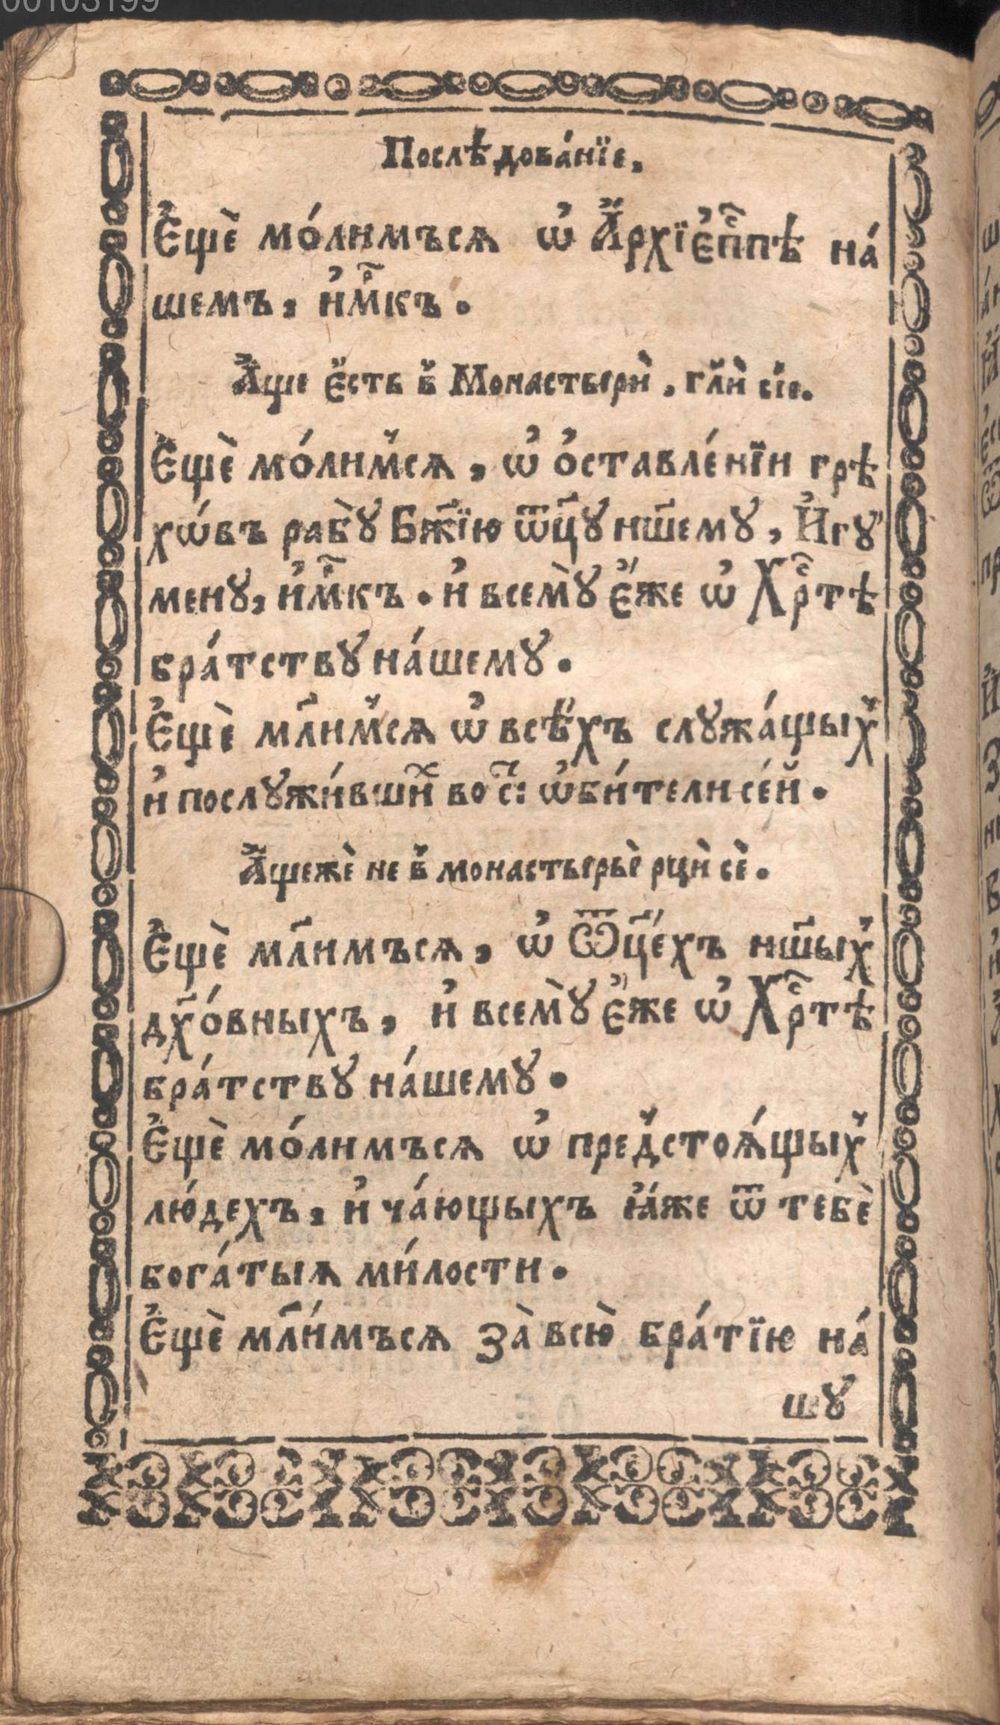 00103199
Послѣдова́нїе,
Є҆щѐ мо́лимъсѧ ѡ҆ А҆рхїє҆пⷭ҇пѣ на́
шемъ, и҆мⷬ҇къ.
А҆ще є҆́сть в̾ Монастьери̾, гл҃и̾ сїе.
Є҆щѐ мо́лим̾сѧ, ѡ҆ ѡ҆ставле́нїи грѣ
хѡ́въ рабꙋ̀ Бж҃їю ѿц҃ꙋ нш҃емꙋ, И҆гꙋ́
менꙋ, и҆мⷬ҇къ. и҆ всемꙋ̀ є҆́же ѡ҆ Хрⷭ҇тѣ
бра́тствꙋ на́шемꙋ.
Є҆щѐ мл҃им̾сѧ ѡ҆ всѣ́хъ слꙋжа́щых̾
и҆ послꙋжи́вшиⷯ во с҃: ѡ҆би́тели се́й.
А҆щежѐ не в̾ монастьерьѐ рцѝ сѐ.
Є҆щѐ мл҃имъсѧ, ѡ҆ Ѿц҃е́хъ нш҃ых̾
дх҃о́вныхъ, и҆ всемꙋ̀ є҆́же ѡ҆ Хрⷭ҇тѣ
бра́тствꙋ на́шемꙋ.
Є҆щѐ мо́лимъсѧ ѡ҆ пред̾стоѧ́щых̾
лю́дехъ, и҆ ча́ющыхъ ꙗ҆́же ѿ тебѐ
бога́тыѧ ми́лости.
Є҆щѐ мл҃и́мъсѧ за̀ всю̀ бра́тїю на́
шꙋ